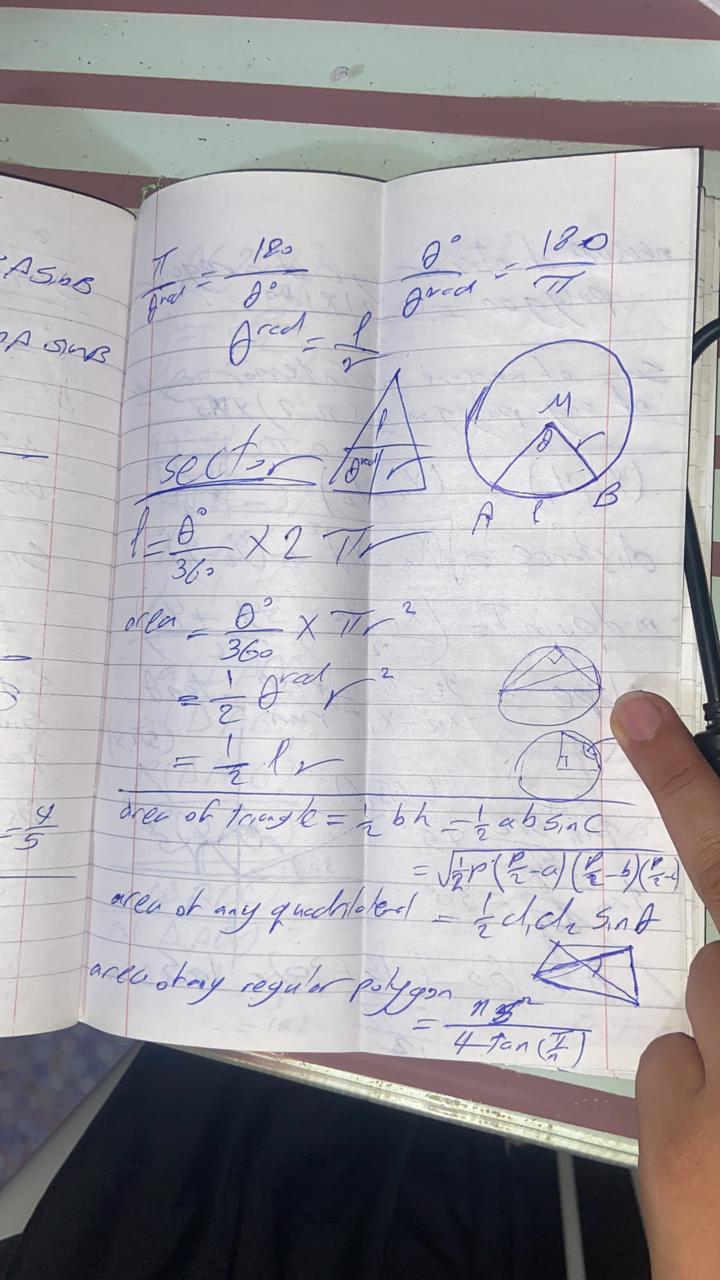 A SinB
A SinB
= 4/5
π/θ^rad = 180/θ° θ°/θ^rad = 180/π
θ^rad = l/r
l
θ^rad r
M
θ r
A l B
sector
l = θ°/360 × 2 πr
area = θ°/360 × πr²
= 1/2 θ^rad r²
= 1/2 l r
area of triangle = 1/2 bh = 1/2 a b sin C
= √(1/2 P (P/2 - a) (P/2 - b) (P/2 - c))
area of any quadrilateral = 1/2 d₁ d₂ Sin θ
area of any regular polygon
= n s²/4 tan(π/n)